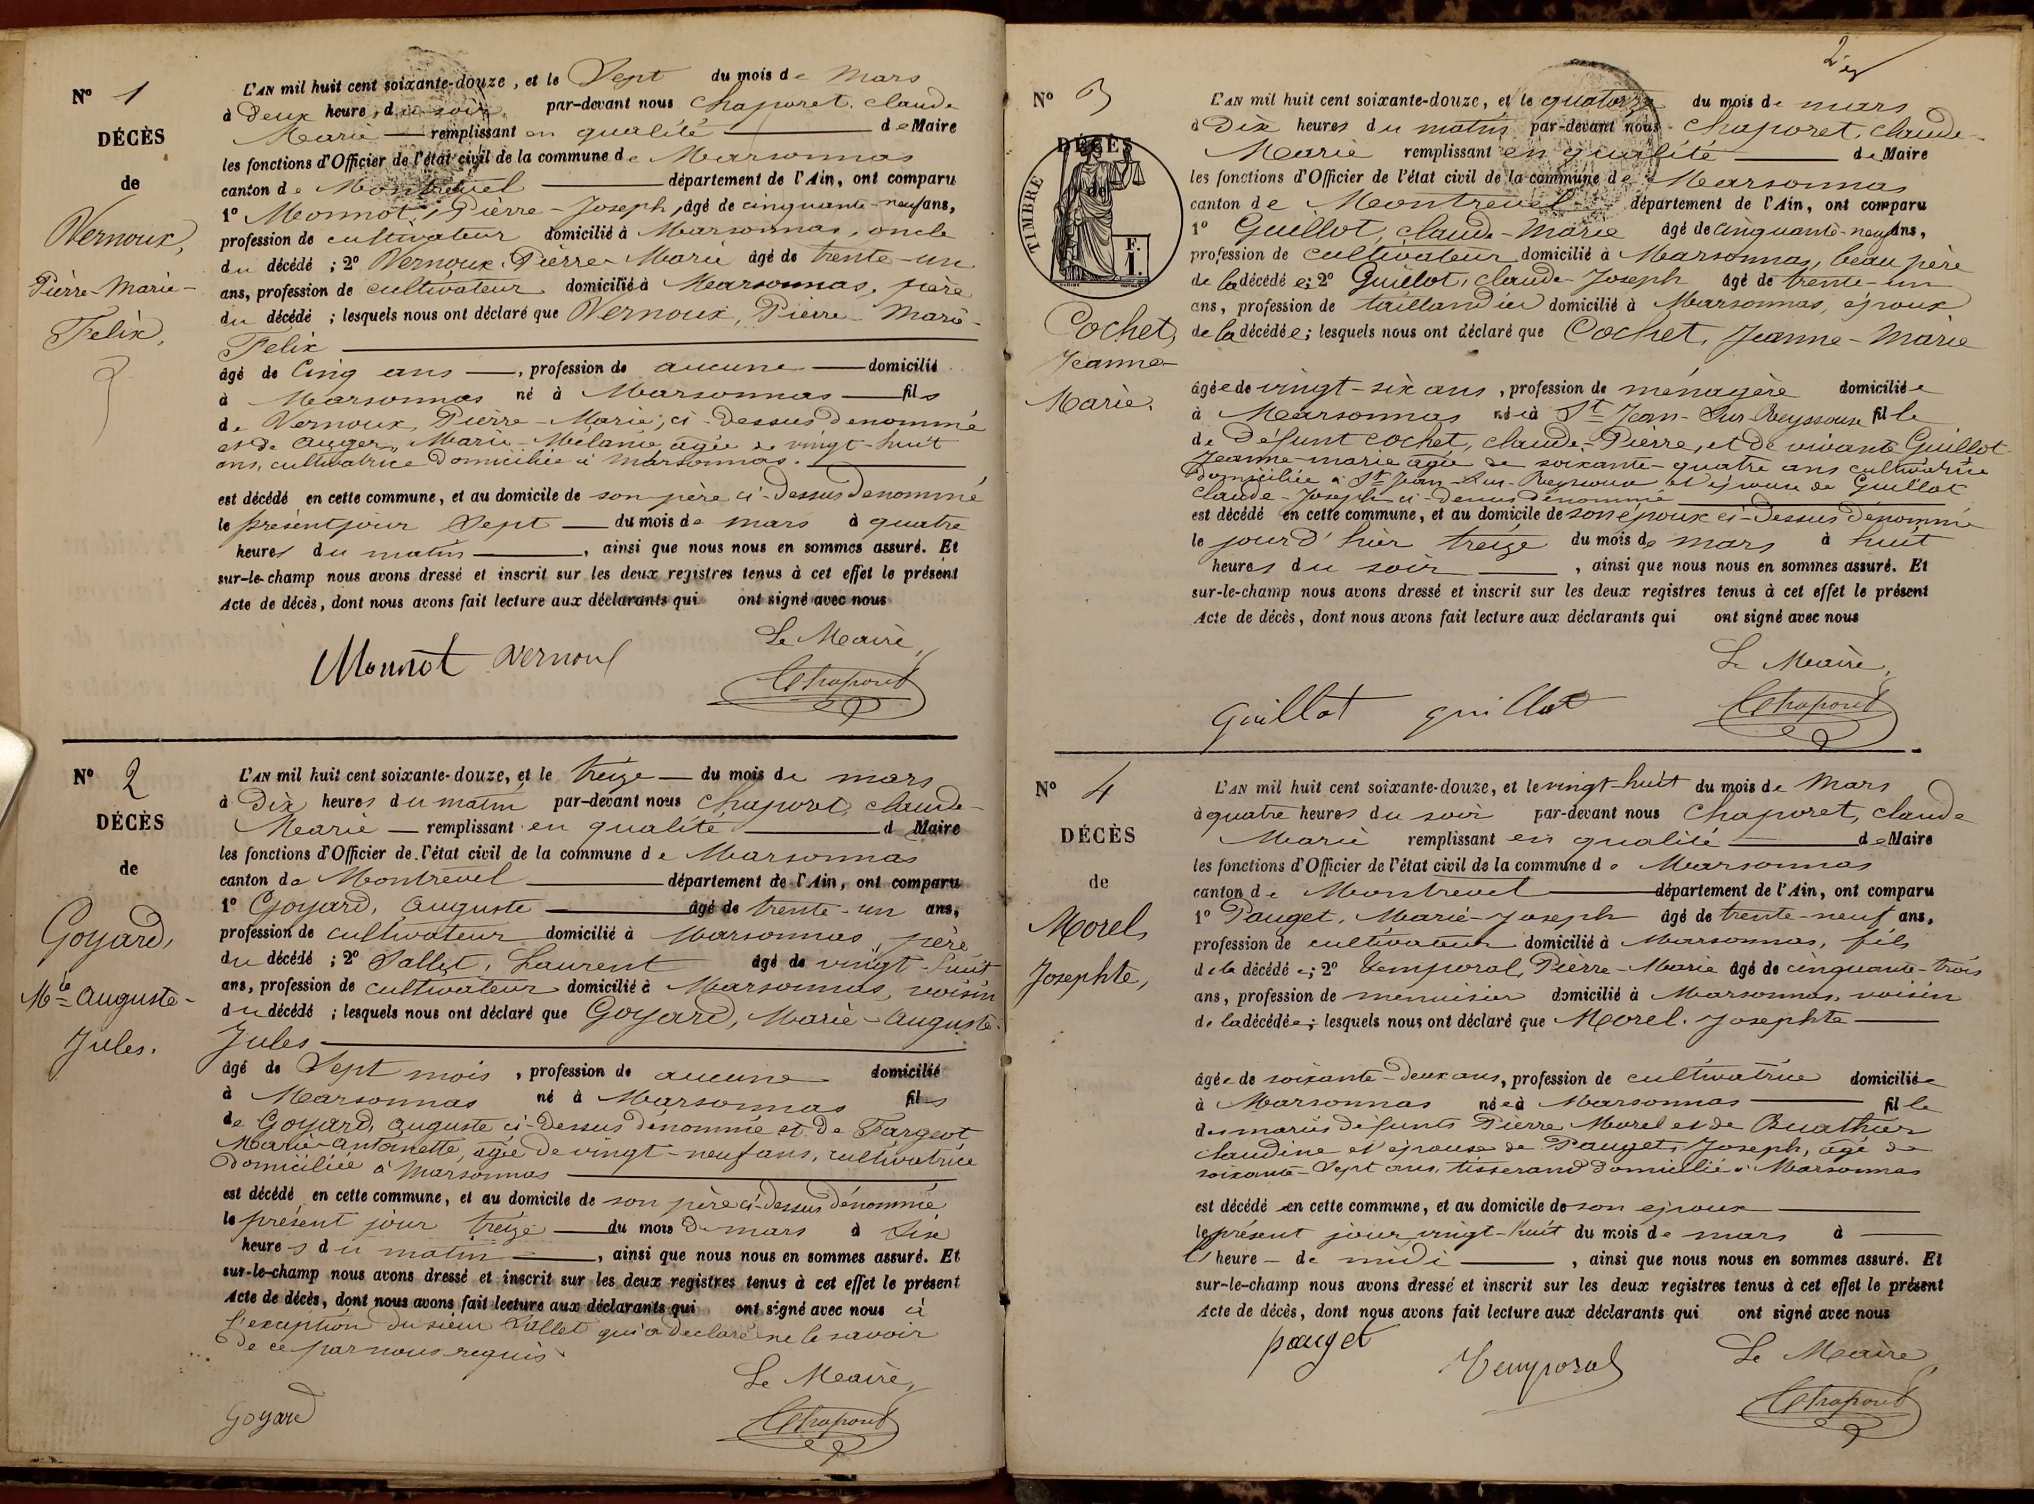 N° 1
DÉCÈS
de
Vernoux,
Pierre-Marie-
Felix,
L'AN mil huit cent soixante-douze, et le Sept du mois de Mars
à Deux heure, du soir par-devant nous Chaporet, Claude
Marie — remplissant en qualité — de Maire
les fonctions d'Officier de l'état civil de la commune de Marsonnas
canton de Montrevel — département de l'Ain, ont comparu
1° Monnot, Pierre-Joseph, âgé de cinquante-neuf ans,
profession de cultivateur domicilié à Marsonnas, oncle
du décédé ; 2° Vernoux Pierre-Marie âgé de trente-un
ans, profession de cultivateur domicilié à Marsonnas, père
du décédé ; lesquels nous ont déclaré que Vernoux, Pierre-Marie-
Felix —
âgé de Cinq ans —, profession de aucune — domicilié
à Marsonnas né à Marsonnas — fils
de Vernoux, Pierre-Marie, ci-dessus dénommé
et de Auger, Marie-Mélanie, âgée de vingt-huit
ans, cultivatrice domiciliée à Marsonnas. —
est décédé en cette commune, et au domicile de son père ci-dessus dénommé
le présent jour Sept — du mois de mars à quatre
heures du matin —, ainsi que nous nous en sommes assuré. Et
sur-le-champ nous avons dressé et inscrit sur les deux registres tenus à cet effet le présent
Acte de décès, dont nous avons fait lecture aux déclarants qui ont signé avec nous
Le Maire,
Monnot Vernoux Chaporet
N° 2
DÉCÈS
de
Goyard,
Mie Auguste-
Jules.
L'AN mil huit cent soixante-douze, et le treize — du mois de mars
à Dix heures du matin par-devant nous Chaporet, Claude-
Marie — remplissant en qualité — d Maire
les fonctions d'Officier de l'état civil de la commune de Marsonnas
canton de Montrevel — département de l'Ain, ont comparu
1° Goyard, Auguste — âgé de trente-un ans,
profession de cultivateur domicilié à Marsonnas, père
du décédé ; 2° Sallet, Laurent âgé de vingt-huit
ans, profession de cultivateur domicilié à Marsonnas, voisin
du décédé ; lesquels nous ont déclaré que Goyard, Marie-Auguste-
Jules —
âgé de Sept mois, profession de aucune domicilié
à Marsonnas né à Marsonnas fils
de Goyard, Auguste ci-dessus dénommé et de Fargeot
Marie-Antoinette, âgée de vingt-neuf ans, cultivatrice
domiciliée à Marsonnas —
est décédé en cette commune, et au domicile de son père ci-dessus dénommé
le présent jour treize — du mois de mars à six
heures du matin —, ainsi que nous nous en sommes assuré. Et
sur-le-champ nous avons dressé et inscrit sur les deux registres tenus à cet effet le présent
Acte de décès, dont nous avons fait lecture aux déclarants qui ont signé avec nous à
l'exception du sieur Sallet qui a déclaré ne le savoir
de ce par nous requis
Le Maire,
Goyard Chaporet
2e
N° 3
DÉCÈS
de
TIMBRE
F.
1.
Cochet,
Jeanne-
Marie.
L'AN mil huit cent soixante-douze, et le quatorze du mois de mars
à Dix heures du matin par-devant nous Chaporet, Claude-
Marie remplissant en qualité — de Maire
les fonctions d'Officier de l'état civil de la commune de Marsonnas
canton de Montrevel département de l'Ain, ont comparu
1° Guillot, Claude-Marie âgé de cinquante-neuf ans,
profession de cultivateur domicilié à Marsonnas, beau père
de la décédée ; 2° Guillot, Claude-Joseph âgé de trente-un
ans, profession de taillandier domicilié à Marsonnas, époux
de la décédée ; lesquels nous ont déclaré que Cochet, Jeanne-Marie
âgée de vingt-six ans, profession de ménagère domiciliée
à Marsonnas née à St Jean-Sur-Reyssouze fille
de défunt Cochet, Claude-Pierre, et de vivante Guillot
Jeanne-marie âgée de soixante-quatre ans cultivatrice
domiciliée à St Jean-Sur-Reyssouze et épouse de Guillot
Claude-Joseph ci-dessus dénommé —
est décédé en cette commune, et au domicile de son époux ci-dessus dénommé
le jour d'hier treize du mois de mars à huit
heures du soir —, ainsi que nous nous en sommes assuré. Et
sur-le-champ nous avons dressé et inscrit sur les deux registres tenus à cet effet le présent
Acte de décès, dont nous avons fait lecture aux déclarants qui ont signé avec nous
Le Maire,
Guillot guillot Chaporet
N° 4
DÉCÈS
de
Morel,
Josephte,
L'AN mil huit cent soixante-douze, et le vingt-huit du mois de Mars
à quatre heures du soir par-devant nous Chaporet, Claude
Marie remplissant en qualité — de Maire
les fonctions d'Officier de l'état civil de la commune de Marsonnas
canton de Montrevel — département de l'Ain, ont comparu
1° Pauget, Marie-Joseph âgé de trente-neuf ans,
profession de cultivateur domicilié à Marsonnas, fils
de la décédée ; 2° Temporal, Pierre-Marie âgé de cinquante-trois
ans, profession de menuisier domicilié à Marsonnas, voisin
de la décédée ; lesquels nous ont déclaré que Morel, Josephte —
âgée de soixante-deux ans, profession de cultivatrice domiciliée
à Marsonnas née à Marsonnas — fille
des mariés défunts Pierre Morel et de Buathier
Claudine et épouse de Pauget, Joseph, âgé de
soixante-Sept ans, tisserand domicilié à Marsonnas
est décédé en cette commune, et au domicile de son époux —
le présent jour vingt-huit du mois de mars à —
l'heure — de midi —, ainsi que nous nous en sommes assuré. Et
sur-le-champ nous avons dressé et inscrit sur les deux registres tenus à cet effet le présent
Acte de décès, dont nous avons fait lecture aux déclarants qui ont signé avec nous
Le Maire,
pauget Temporal Chaporet